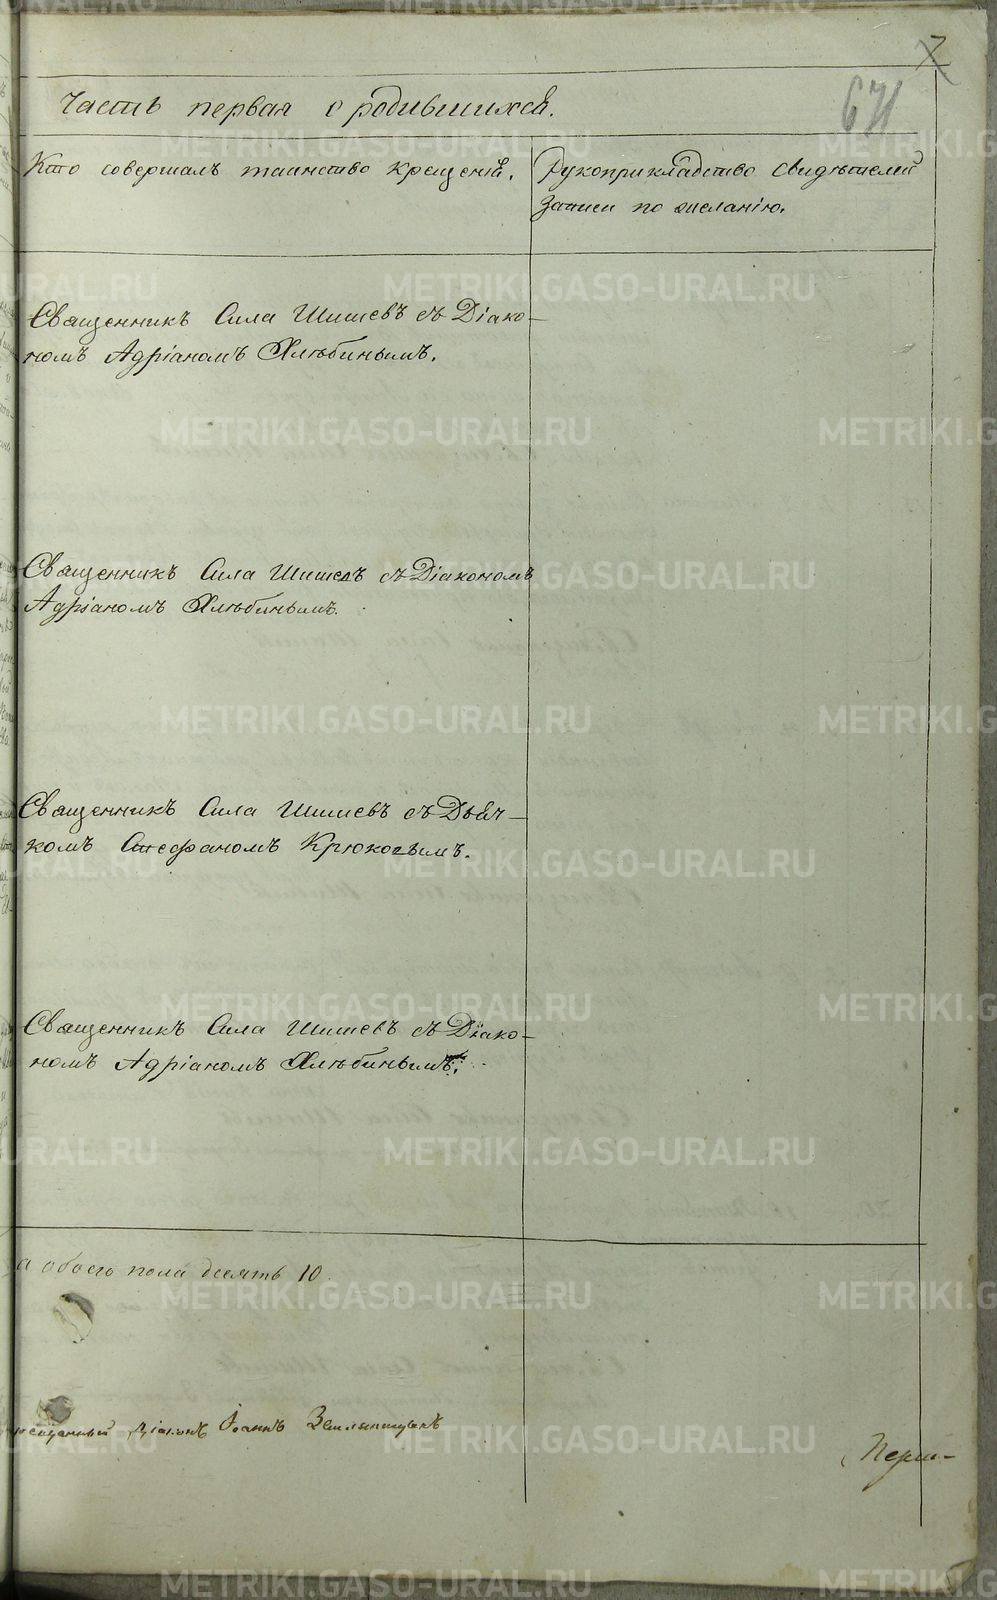 7
671
Часть первая о родившихся.
Кто совершалъ таинство крещенія.
Рукоприкладство свидѣтелей
записи по желанію.
Священникъ Сила Шишевъ съ Діако-
номъ Адріаномъ Хлѣбинымъ.
Священникъ Сила Шишевъ съ Діакономъ
Адріаномъ Хлѣбинымъ.
Священникъ Сила Шишевъ съ Дьяч-
комъ Стефаномъ Крюковымъ.
Священникъ Сила Шишевъ съ Діако-
номъ Адріаномъ Хлѣбинымъ.
а обоего пола десять 10.
діаконъ Іоаннъ
METRIKI.GASO-URAL.RU